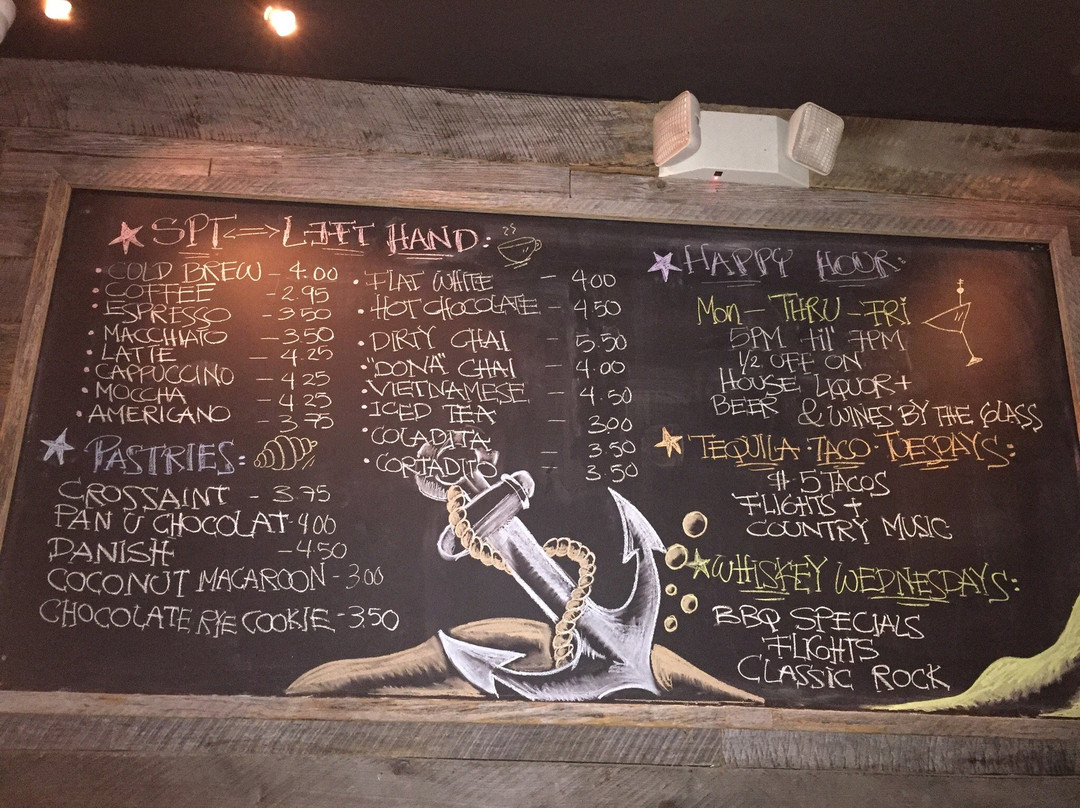 SPT <=> LEFT HAND:
• COLD BREW - 4.00
• COFFEE - 2.95
• ESPRESSO - 3.50
• MACCHIATO - 3.50
• LATTE - 4.25
• CAPPUCCINO - 4.25
• MOCCHA - 4.25
• AMERICANO - 3.75
• FLAT WHITE - 4.00
• HOT CHOCOLATE - 4.50
• DIRTY CHAI - 5.50
• "DONA" CHAI - 4.00
• VIETNAMESE - 4.50
• ICED TEA - 3.00
• COLADITA - 3.50
• CORTADITO - 3.50
PASTRIES:
CROSSAINT - 3.75
PAN U CHOCOLAT - 4.00
DANISH - 4.50
COCONUT MACAROON - 3.00
CHOCOLATE RYE COOKIE - 3.50
HAPPY HOUR:
Mon - THRU - FRi
5PM til' 7PM
1/2 OFF ON
HOUSE LIQUOR +
BEER & WINES BY THE GLASS
TEQUILA · TACO · TUESDAYS:
$5 TACOS
FLIGHTS +
COUNTRY MUSIC
WHISKEY WEDNESDAYS:
BBQ SPECIALS
FLIGHTS
CLASSIC ROCK